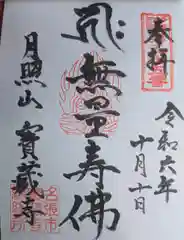 奉拝
令和六年
十月十日
無量寿佛
月照山
寳蔵寺
名張市